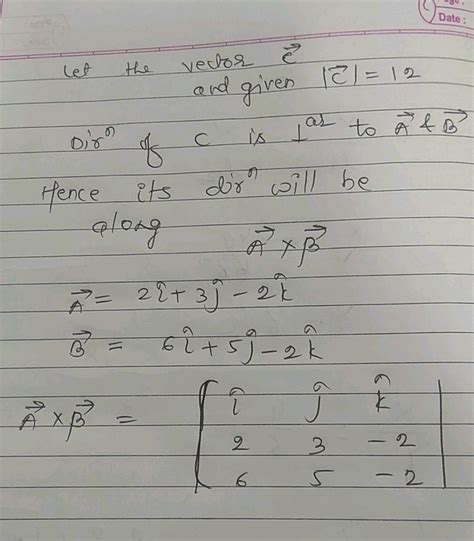 Date :
Let the vector C⃗
and given |C⃗| = 12
Dirⁿ of C is ⊥ᵃʳ to A⃗ & B⃗
Hence its dirⁿ will be
along A⃗ × B⃗
A⃗ = 2î + 3ĵ - 2k̂
B⃗ = 6î + 5ĵ - 2k̂
A⃗ × B⃗ = | î ĵ k̂ |
2 3 -2
6 5 -2